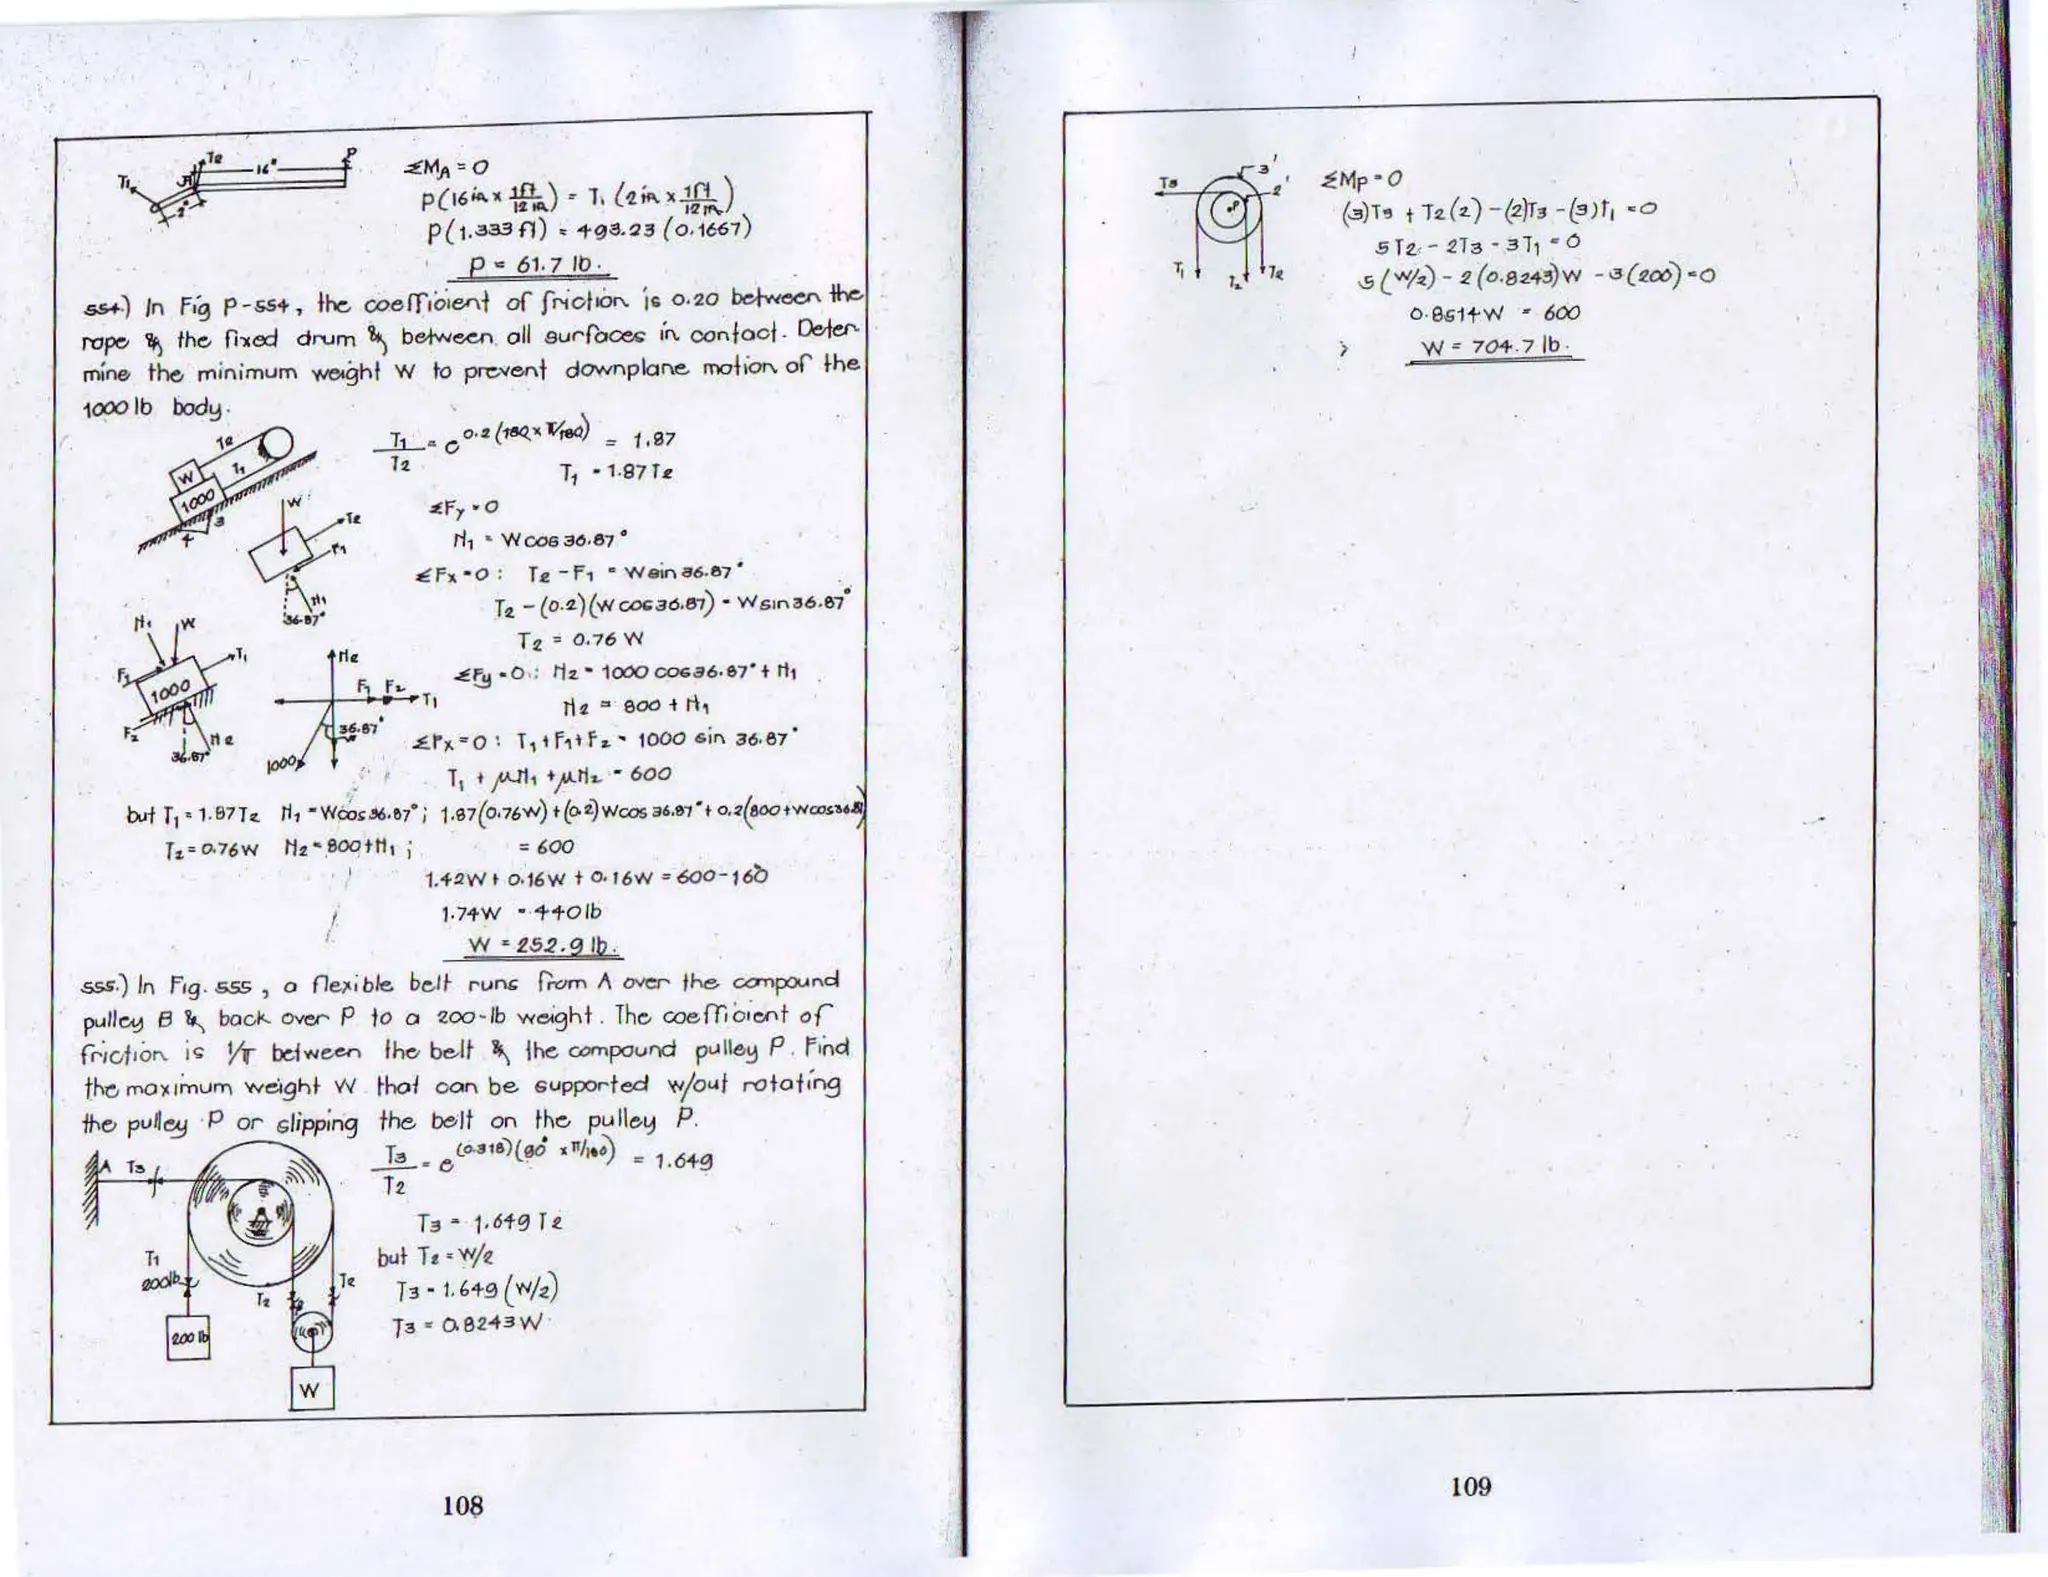 T₁ T2 A 16" P 2"
ΣMA = 0
P(16 in x 1ft/12 in) = T₁ (2 in x 1ft/12 in)
P(1.333 ft) = 493.23 (0.1667)
P = 61.7 lb.
554.) In Fig P-554, the coefficient of friction is 0.20 between the
rope & the fixed drum & between all surfaces in contact. Deter-
mine the minimum weight W to prevent downplane motion of the
1000 lb body.
T2 T1 W 1000 3 4
T1/T2 = e^0.2(180 x π/180) = 1.87
T1 = 1.87T2
W T2 F1 N1 36.87°
ΣFy = 0
N1 = W cos 36.87°
ΣFx = 0 : T2 - F1 = W sin 36.87°
T2 - (0.2)(W cos 36.87) = W sin 36.87°
T2 = 0.76 W
N1 W T1 F1 1000 F2 N2 36.87°
N2 F1 F2 T1 36.87° 1000
ΣFy = 0 : N2 = 1000 cos 36.87° + N1
N2 = 800 + N1
ΣFx = 0 : T1 + F1 + F2 = 1000 sin 36.87°
T1 + μN1 + μN2 = 600
but T1 = 1.87T2 N1 = W cos 36.87° ; 1.87(0.76W) + (0.2) W cos 36.87° + 0.2(800 + W cos 36.87)
T2 = 0.76W N2 = 800 + N1 ; = 600
1.42W + 0.16W + 0.16W = 600 - 160
1.74W = 440 lb
W = 252.9 lb.
555.) In Fig. 555, a flexible belt runs from A over the compound
pulley B & back over P to a 200-lb weight. The coefficient of
friction is 1/π between the belt & the compound pulley P. Find
the maximum weight W that can be supported w/out rotating
the pulley P or slipping the belt on the pulley P.
A T3 T1 200lb T2 T2 200 lb W
T3/T2 = e^(0.318)(90° x π/180) = 1.649
T3 = 1.649 T2
but T2 = W/2
T3 = 1.649 (W/2)
T3 = 0.8243W
108
T3 3' 2' P T1 T2 T2
ΣMp = 0
(3)T2 + T2(2) - (2)T3 - (3)T1 = 0
5T2 - 2T3 - 3T1 = 0
5 (W/2) - 2 (0.8243)W - 3(200) = 0
0.8514W = 600
W = 704.7 lb.
109